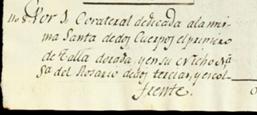 Por 1 Corateral dedicada ala mis
ma Santa dedos Cuerpos el primero
de talla dorada, y en su Nicho Nra
Sra del Rosario dedos tercias, y es col
frente.